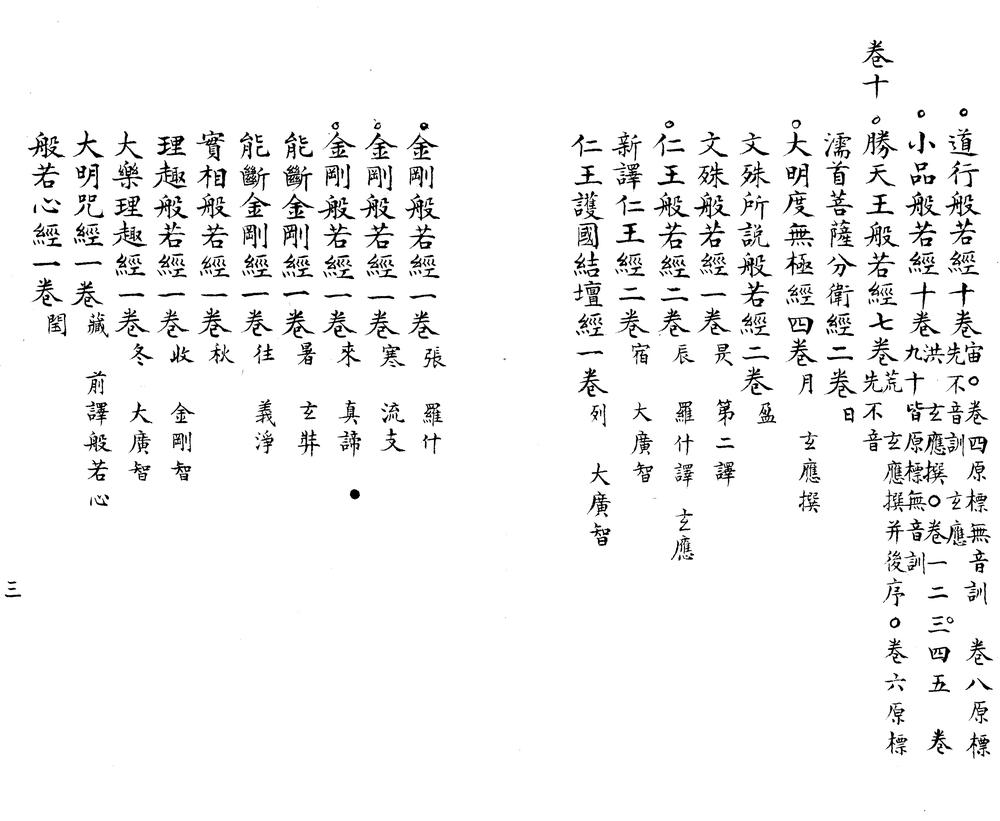 ○道行般若經十卷 宙○卷四原標無音訓 卷八原標先不音訓 玄應
○小品般若經十卷 洪 玄應撰○卷一二三○四五 卷九十皆原標無音訓
卷十 ○勝天王般若經七卷 荒 玄應撰并後序○卷六原標先不音
濡首菩薩分衛經二卷 日
○大明度無極經四卷 月 玄應撰
文殊所説般若經二卷 盈
文殊般若經一卷 昃 第二譯
○仁王般若經二卷 辰 羅什譯 玄應
新譯仁王經二卷 宿 大廣智
仁王護國結壇經一卷 列 大廣智
○金剛般若經一卷 張 羅什
○金剛般若經一卷 寒 流支
○金剛般若經一卷 來 真諦
能斷金剛經一卷 暑 玄奘
能斷金剛經一卷 往 義淨
實相般若經一卷 秋
理趣般若經一卷 收 金剛智
大樂理趣經一卷 冬 大廣智
大明咒經一卷 藏 前譯般若心
般若心經一卷 閏
三